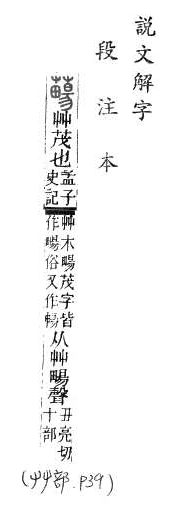 說文解字
段注本
䕋艸茂也孟子史記艸木畼茂字皆作畼俗又作暢从艸畼聲丑亮切十部
(艸部.p39)